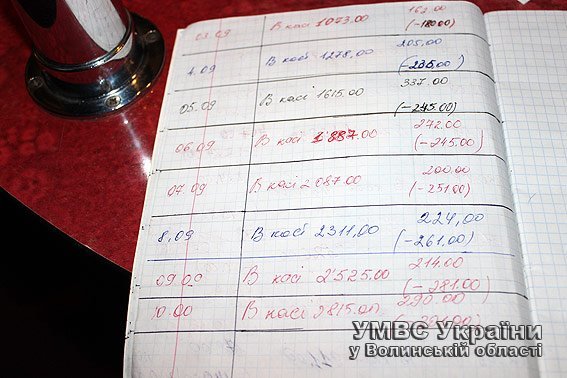 03.09 В касі 1073.00 162.00
(-180.00)
4.09 В касі 1278,00 205,00
(-235.00)
05.09 В касі 1615.00 337.00
(-245.00)
06.09 В касі 1887.00 272.00
(-245.00)
07.09 В касі 2087.00 200.00
(-251.00)
8,09 В касі 2311,00 224,00
(-261,00)
09.09 В касі 2525.00 214.00
(-281.00)
10.00 В касі 2815.00 290.00
УМВС України
у Волинській області